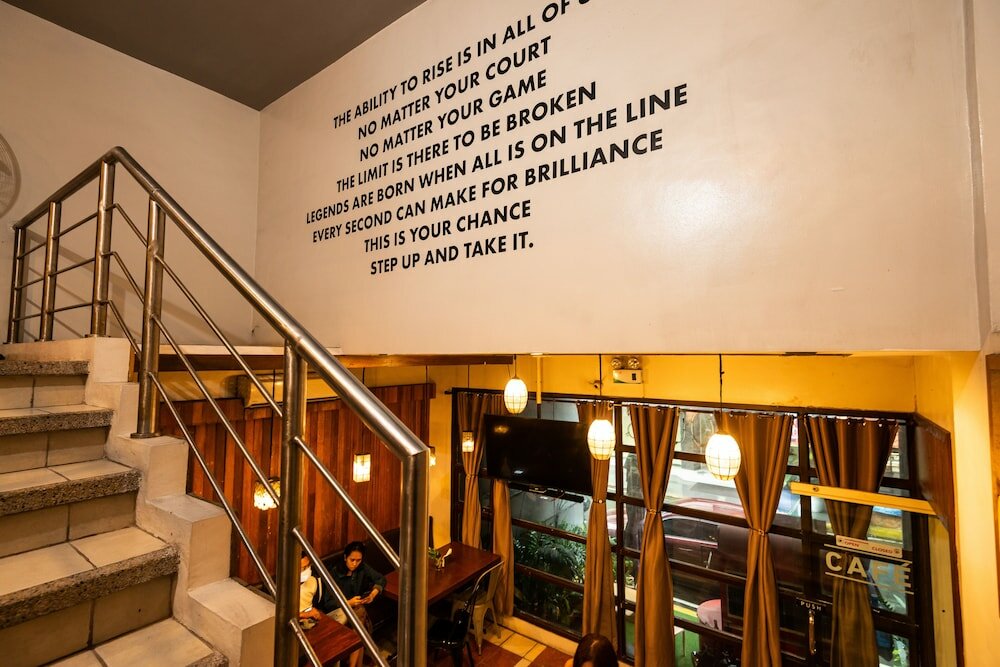 THE ABILITY TO RISE IS IN ALL OF
NO MATTER YOUR COURT
NO MATTER YOUR GAME
THE LIMIT IS THERE TO BE BROKEN
LEGENDS ARE BORN WHEN ALL IS ON THE LINE
EVERY SECOND CAN MAKE FOR BRILLIANCE
THIS IS YOUR CHANCE
STEP UP AND TAKE IT.
OPEN CLOSED
CAFÉ
PUSH